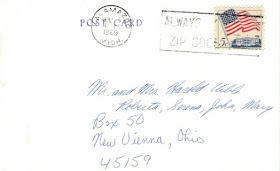 POST CARD
1969
ALWAYS
ZIP CODE
Mr. and Mrs. Harold
Roberta, Serena, John, Mary
Box 50
New Vienna, Ohio
45159